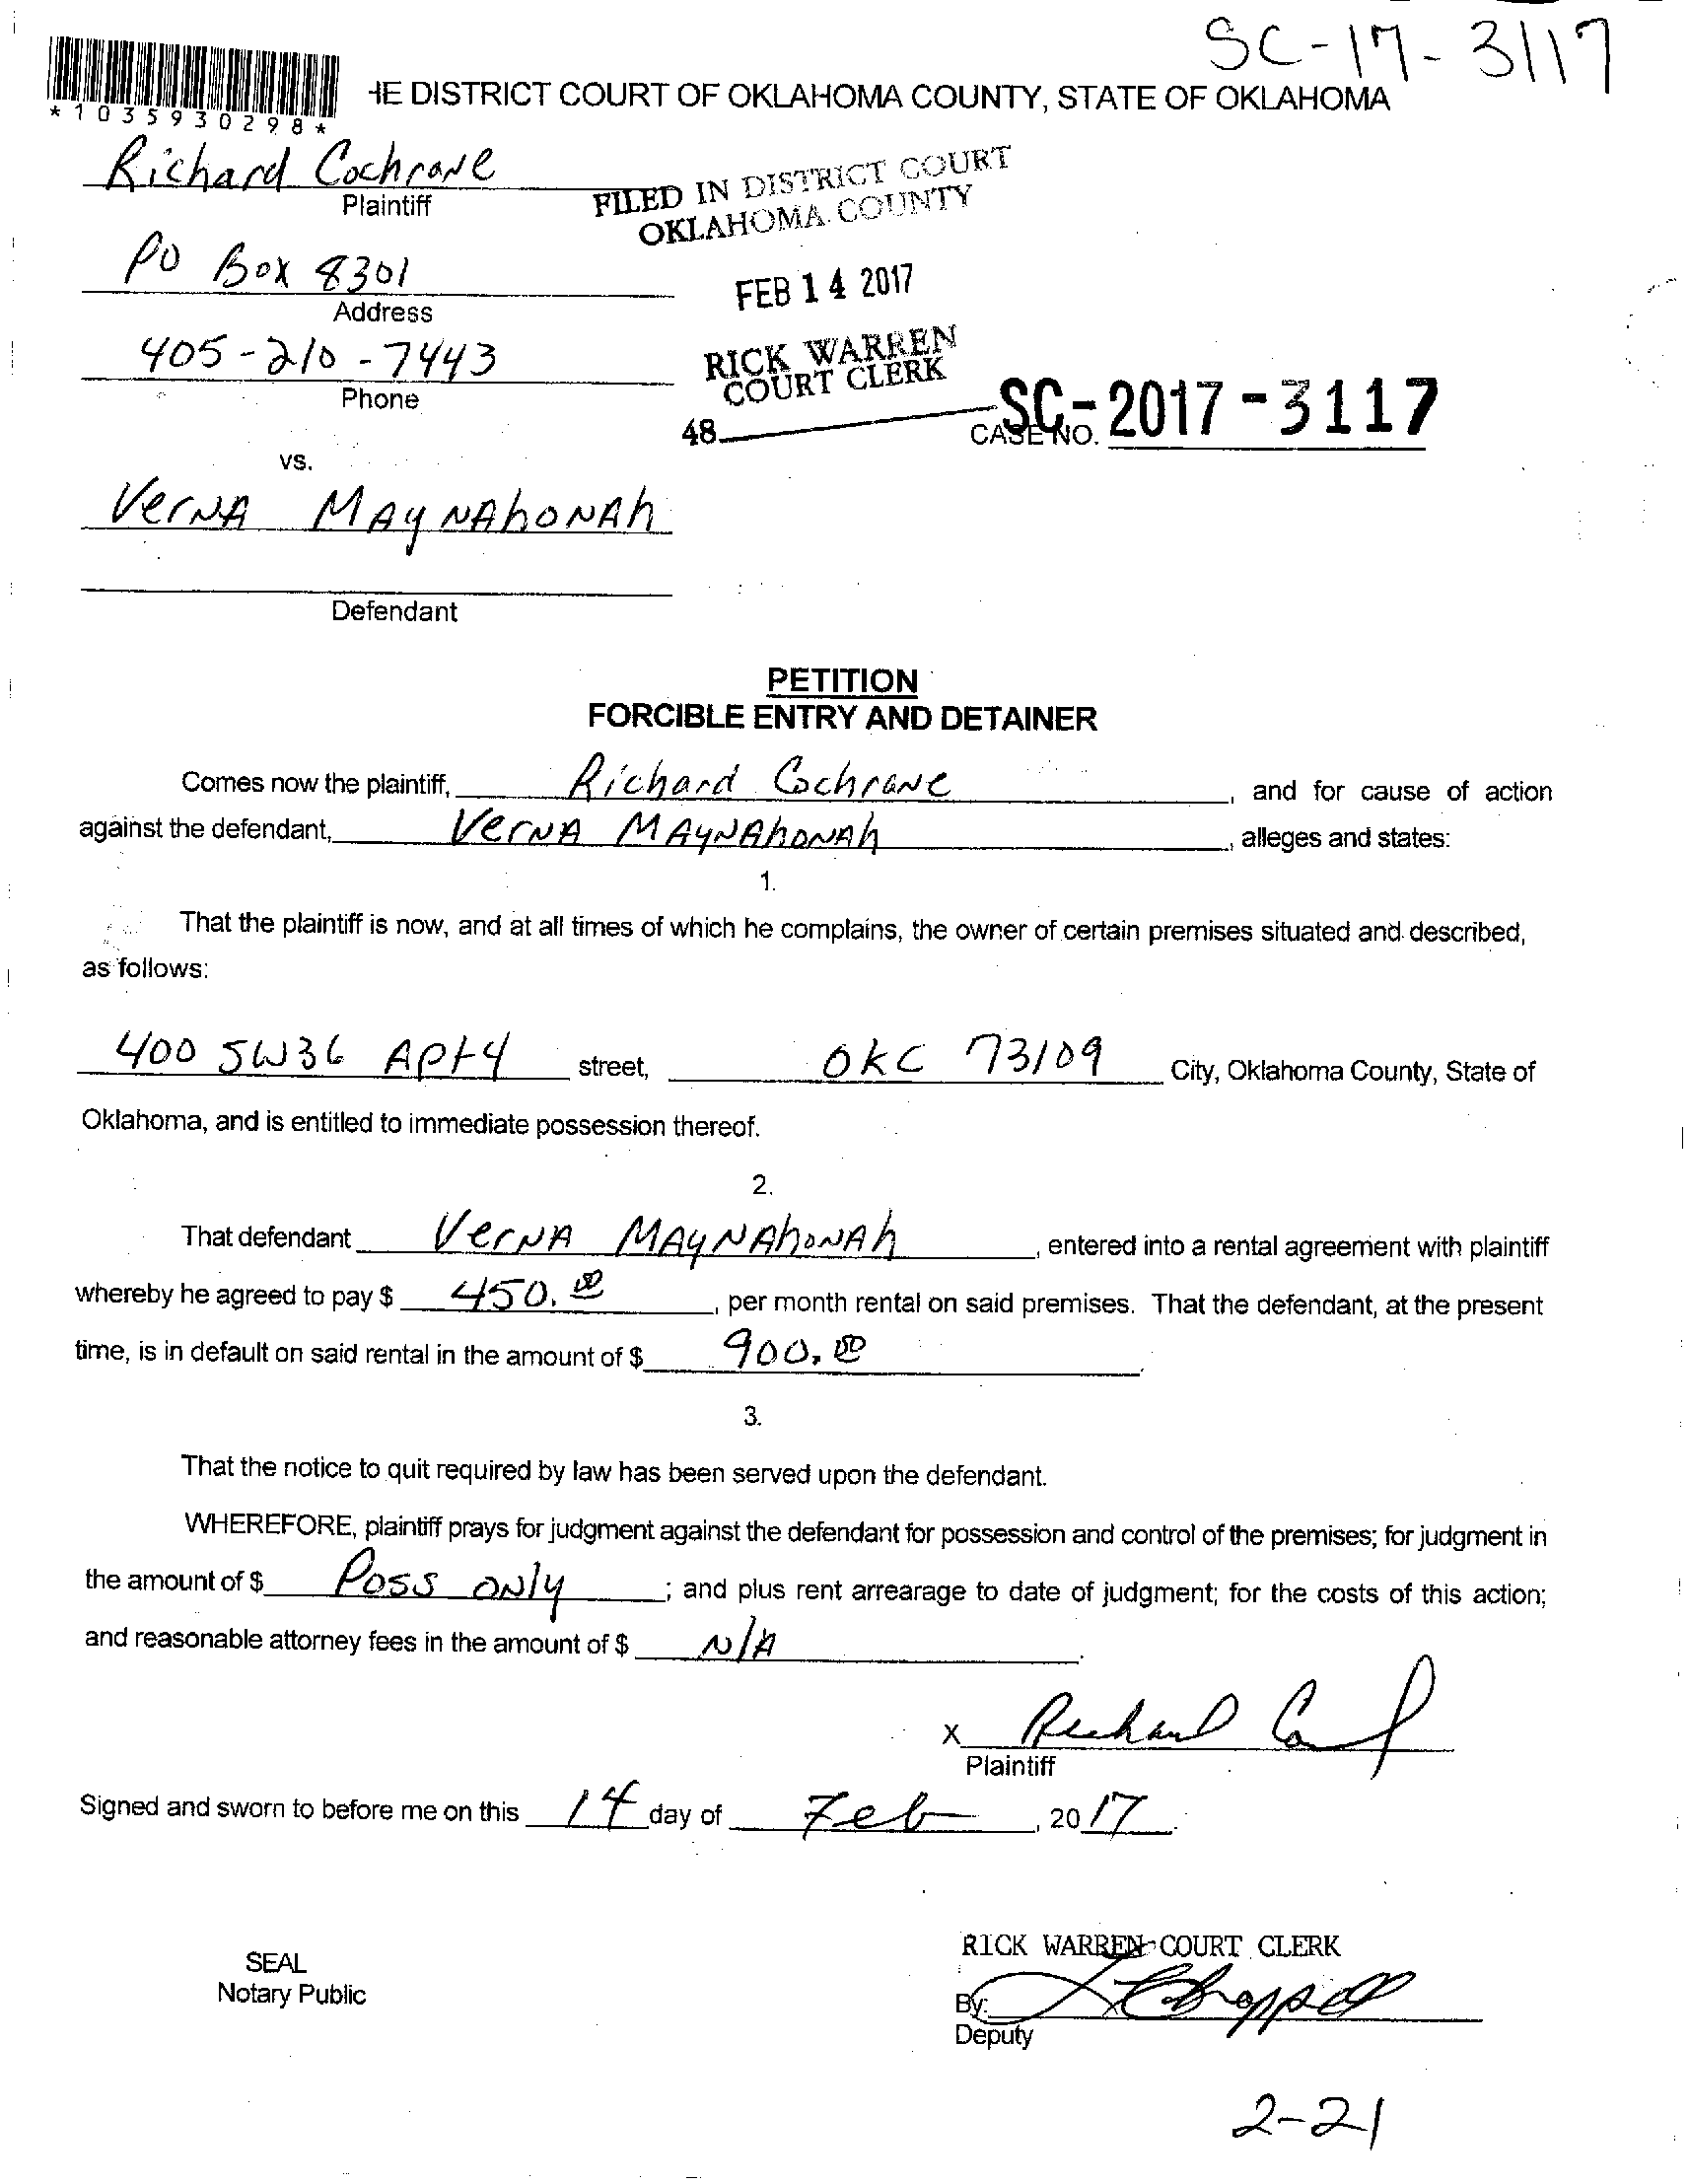 SC-17-3117
*1035930298*
HE DISTRICT COURT OF OKLAHOMA COUNTY, STATE OF OKLAHOMA
Richard Cochrane
Plaintiff
FILED IN DISTRICT COURT
OKLAHOMA COUNTY
PO Box 8301
Address
FEB 14 2017
405-210-7443
Phone
RICK WARREN
COURT CLERK
48
CASE NO. SC-2017-3117
vs.
VerNA MAYNAhONAh
Defendant
PETITION
FORCIBLE ENTRY AND DETAINER
Comes now the plaintiff, Richard Cochrane, and for cause of action
against the defendant, VerNA MAYNAhONAh, alleges and states:
1.
That the plaintiff is now, and at all times of which he complains, the owner of certain premises situated and described,
as follows:
400 SW36 Apt4 street, OKC 73109 City, Oklahoma County, State of
Oklahoma, and is entitled to immediate possession thereof.
2.
That defendant VerNA MAYNAhONAh, entered into a rental agreement with plaintiff
whereby he agreed to pay $ 450.00, per month rental on said premises. That the defendant, at the present
time, is in default on said rental in the amount of $ 900.00.
3.
That the notice to quit required by law has been served upon the defendant.
WHEREFORE, plaintiff prays for judgment against the defendant for possession and control of the premises; for judgment in
the amount of $ Poss ONly; and plus rent arrearage to date of judgment; for the costs of this action;
and reasonable attorney fees in the amount of $ N/A.
X Richard
Plaintiff
Signed and sworn to before me on this 14 day of Feb, 2017.
SEAL
Notary Public
RICK WARREN COURT CLERK
By:
Deputy
2-21